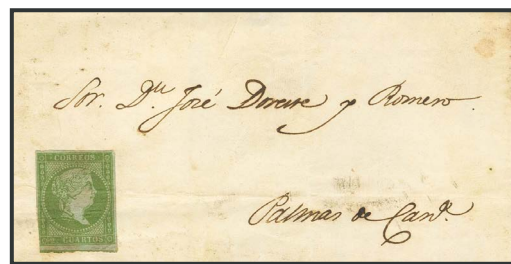 Sor. Dn José Doreste y Romero.
Palmas de Cana.
CORREOS
CUARTOS